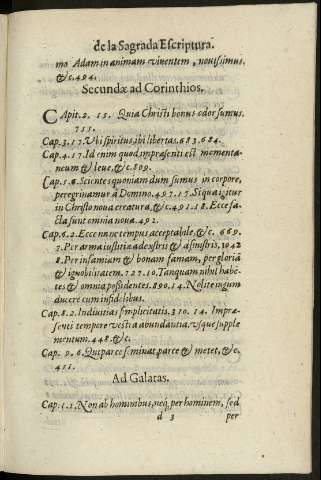 de la Sagrada Escriptura.
mo Adam in animam viventem, novissimus.
&c. 494.
Secundæ ad Corinthios.
CApit. 2. 15. Quia Christi bonus odor sumus.
755.
Cap. 3. 17. Vbi spiritus, ibi libertas. 683. 684.
Cap. 4. 17. Id enim quod in præsenti est momenta-
neum & leve, &c. 809.
Cap. 5. 6. Scientes quoniam dum sumus in corpore,
peregrinamur à Domino. 497. 17. Si qua igitur
in Christo nova creatura, &c. 491. 18. Ecce fa-
cta sunt omnia nova. 492.
Cap. 6. 2. Ecce nunc tempus acceptabile, &c. 669.
7. Per arma iustitiæ à dextris & à sinistris, 3942
8. Per infamiam & bonam famam, per gloriã
& ignobilitatem. 727. 10. Tanquam nihil habẽ-
tes & omnia possidentes. 890. 14. Nolite iugum
ducere cum infidelibus.
Cap. 8. 2. Indivitias simplicitatis, 310. 14. Inpræ-
senti tempore vestra abundantia, vsque supple
mentum, 448. &c.
Cap. 9. 6. Qui parce seminat, parce & metet, &c.
411.
Ad Galatas.
Cap. 1. 1. Non ab hominibus, neq; per hominem, sed
d 3 per